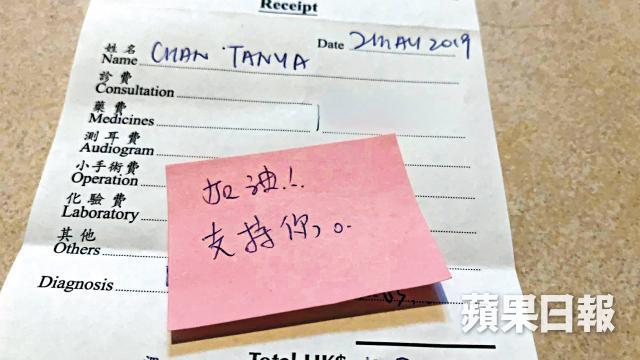 Receipt
姓名
Name CHAN TANYA Date 21MAY 2019
診費
Consultation
藥費
Medicines
測耳費
Audiogram
小手術費
Operation
化驗費
Laboratory
其他
Others
Diagnosis
加油!!
支持你,。
蘋果日報
Total HK$